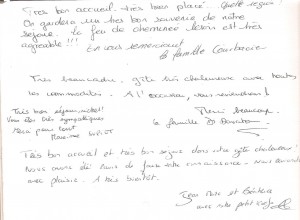 Très bon accueil, très bien placé. Quelle région !
On gardera un très bon souvenir de notre
séjour. Le feu de cheminée le soir est très
agréable !!!
En vous remerciant
la famille
Très beau cadre, gîte très chaleureux avec toutes
les commodités. A l'occasion, nous reviendrons !
Merci beaucoup
la famille
Très bon séjour, nickel !
Vous êtes très sympathiques
Merci pour tout
Très bon accueil et très bon séjour dans votre gîte chaleureux !
Nous avons été ravis de faire votre connaissance. Nous
avec plaisir. A très bientôt.
Jean Marc et
avec notre petit